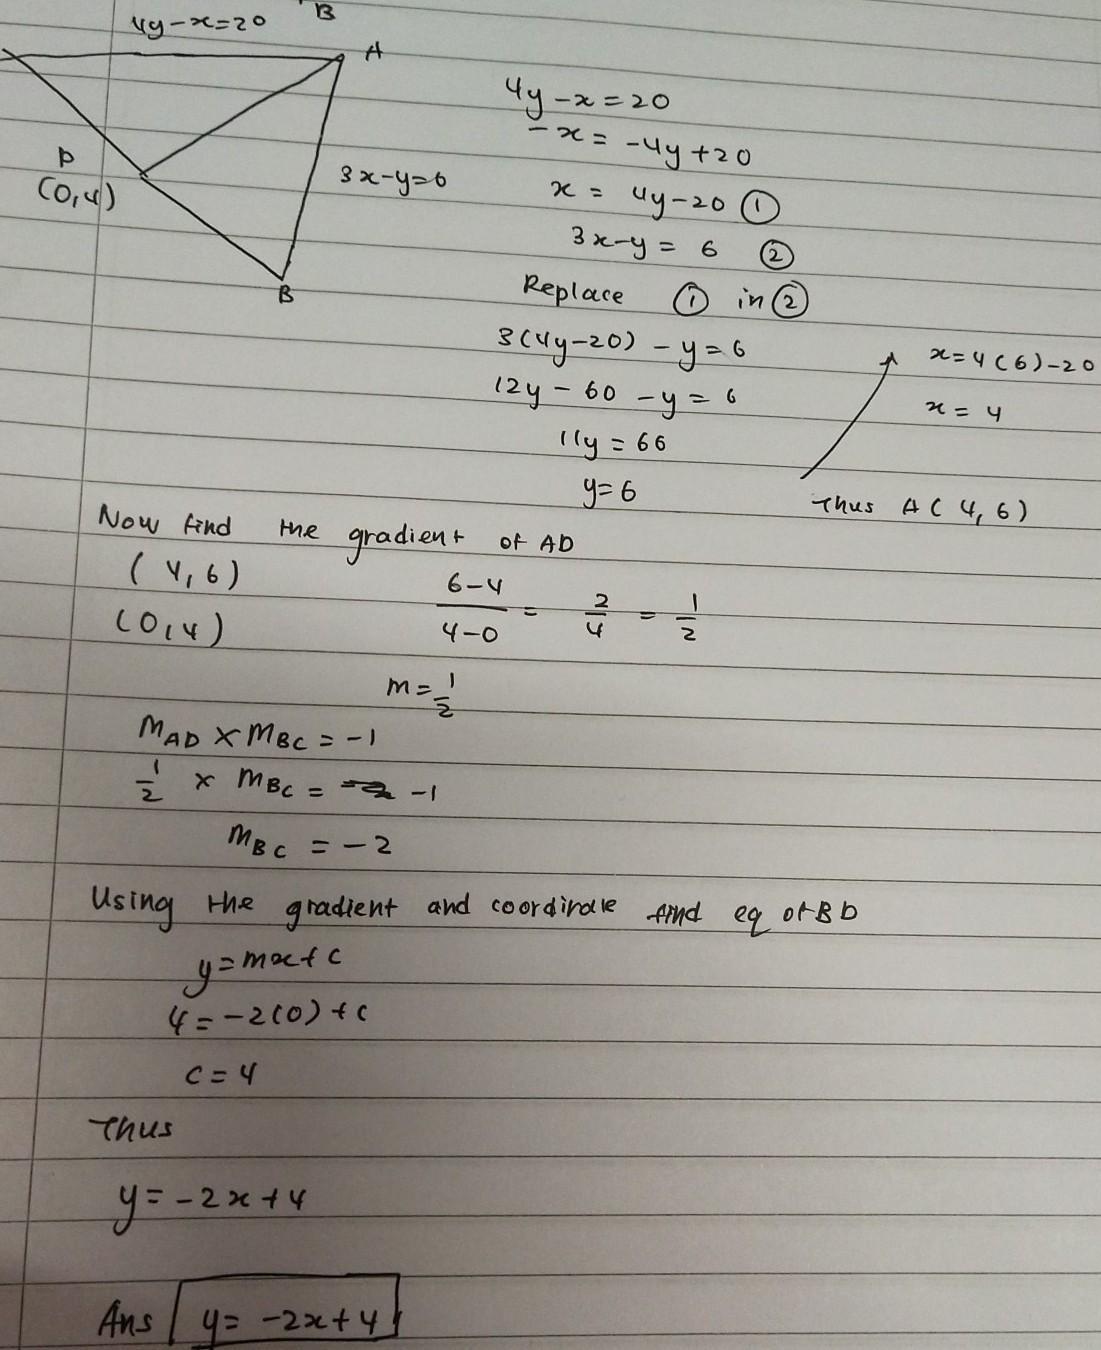 B
4y-x=20
A
4y-x=20
-x = -4y+20
D
(0,4)
3x-y=6
x = 4y-20 ①
3x-y = 6 ②
B
Replace ① in ②
3(4y-20) - y = 6
x=4(6)-20
12y - 60 - y = 6
x = 4
11y = 66
y=6
Thus A(4,6)
Now find the gradient of AD
(4,6)
(0,4)
6-4/4-0 = 2/4 = 1/2
m=1/2
mAD × mBC = -1
1/2 × mBC = -1
mBC = -2
Using the gradient and coordinate find eq of BD
y=mx+c
4=-2(0)+c
c=4
Thus
y=-2x+4
Ans y= -2x+4